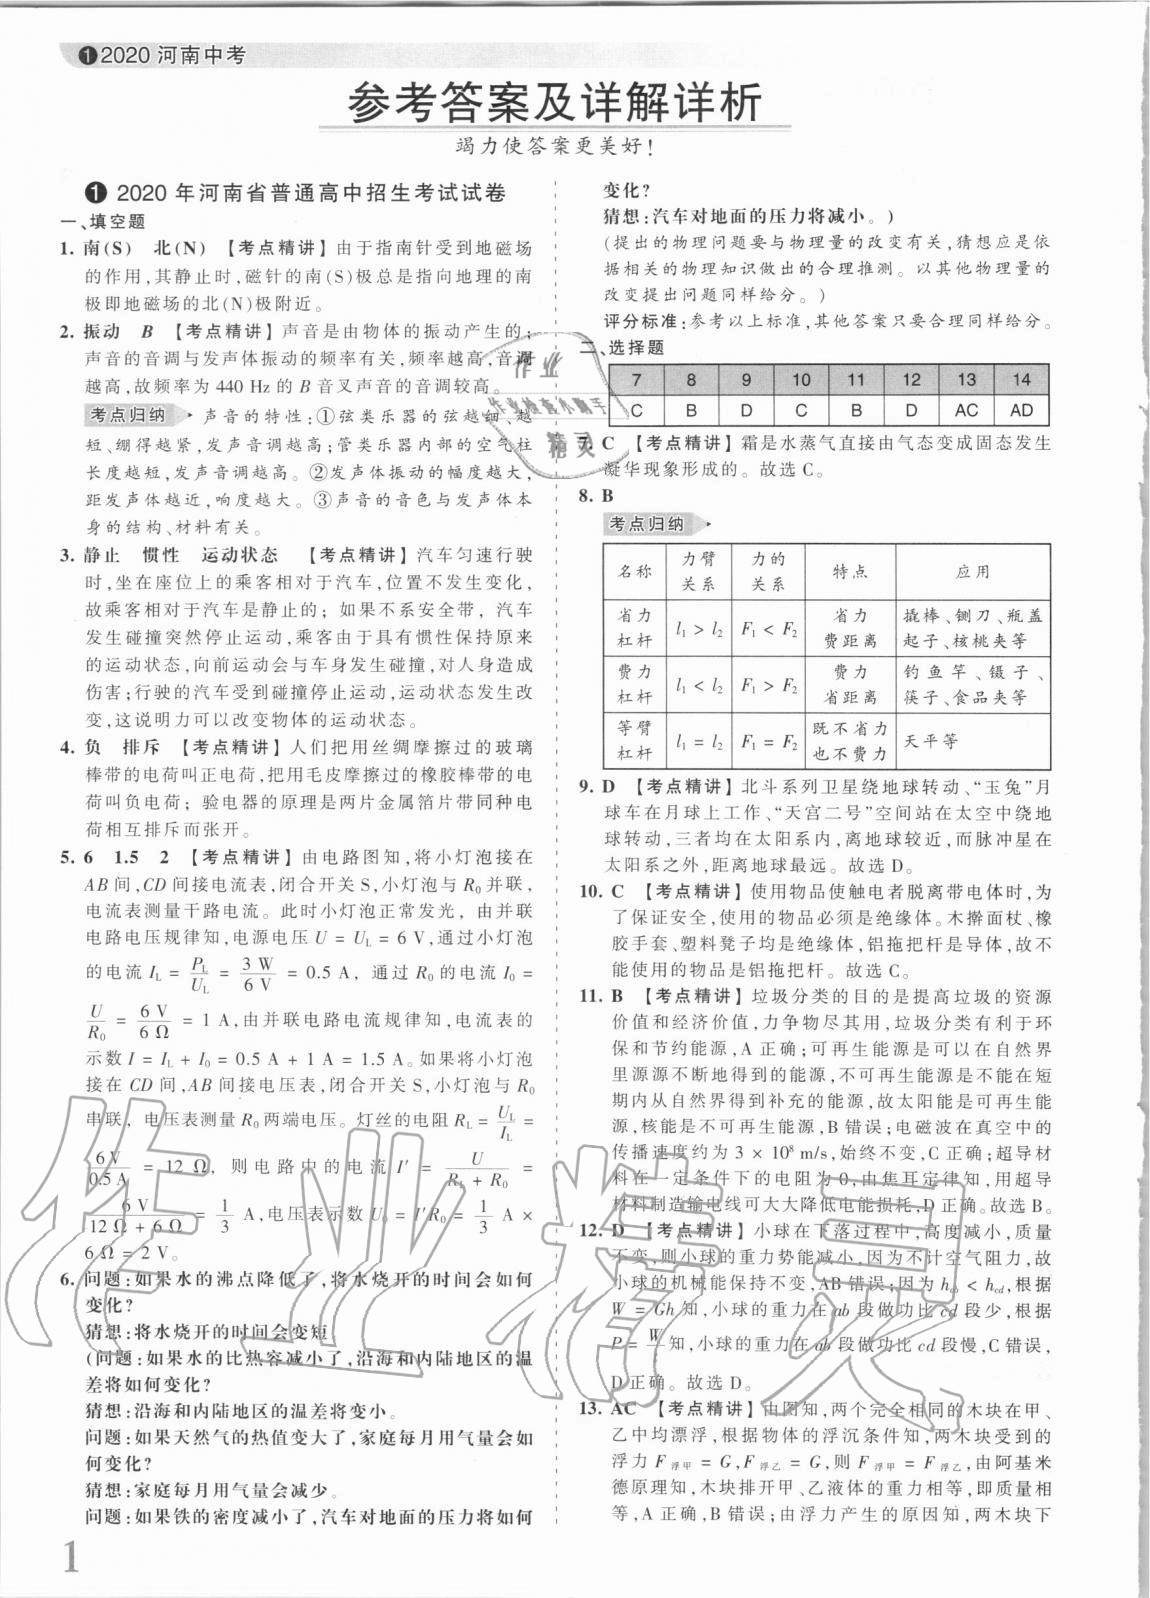 ❶2020 河南中考
参考答案及详解详析
竭力使答案更美好!
❶ 2020 年河南省普通高中招生考试试卷
一、填空题
1. 南(S)　北(N)　【考点精讲】由于指南针受到地磁场
的作用,其静止时,磁针的南(S)极总是指向地理的南
极即地磁场的北(N)极附近。
2. 振动　B　【考点精讲】声音是由物体的振动产生的;
声音的音调与发声体振动的频率有关,频率越高,音调
越高,故频率为 440 Hz 的 B 音叉声音的音调较高。
考点归纳 声音的特性:①弦类乐器的弦越细、越
短、绷得越紧,发声音调越高;管类乐器内部的空气柱
长度越短,发声音调越高。②发声体振动的幅度越大,
距发声体越近,响度越大。③声音的音色与发声体本
身的结构、材料有关。
3. 静止　惯性　运动状态　【考点精讲】汽车匀速行驶
时,坐在座位上的乘客相对于汽车,位置不发生变化,
故乘客相对于汽车是静止的;如果不系安全带,汽车
发生碰撞突然停止运动,乘客由于具有惯性保持原来
的运动状态,向前运动会与车身发生碰撞,对人身造成
伤害;行驶的汽车受到碰撞停止运动,运动状态发生改
变,这说明力可以改变物体的运动状态。
4. 负　排斥　【考点精讲】人们把用丝绸摩擦过的玻璃
棒带的电荷叫正电荷,把用毛皮摩擦过的橡胶棒带的电
荷叫负电荷;验电器的原理是两片金属箔片带同种电
荷相互排斥而张开。
5. 6　1.5　2　【考点精讲】由电路图知,将小灯泡接在
AB 间,CD 间接电流表,闭合开关 S,小灯泡与 R₀并联,
电流表测量干路电流。此时小灯泡正常发光,由并联
电路电压规律知,电源电压 U = U_L = 6 V,通过小灯泡
的电流 I_L = P_L/U_L = 3 W/6 V = 0.5 A,通过 R₀的电流 I₀ =
U/R₀ = 6 V/6 Ω = 1 A,由并联电路电流规律知,电流表的
示数 I = I_L + I₀ = 0.5 A + 1 A = 1.5 A。如果将小灯泡
接在 CD 间,AB 间接电压表,闭合开关 S,小灯泡与 R₀
串联,电压表测量 R₀两端电压。灯丝的电阻 R_L = U_L/I_L =
6 V/0.5 A = 12 Ω,则电路中的电流 I′ = U/(R_L + R₀) =
6 V/(12 Ω + 6 Ω) = 1/3 A,电压表示数 U₀ = I′R₀ = 1/3 A ×
6 Ω = 2 V。
6. 问题:如果水的沸点降低了,将水烧开的时间会如何
变化?
猜想:将水烧开的时间会变短。
(问题:如果水的比热容减小了,沿海和内陆地区的温
差将如何变化?
猜想:沿海和内陆地区的温差将变小。
问题:如果天然气的热值变大了,家庭每月用气量会如
何变化?
猜想:家庭每月用气量会减少。
问题:如果铁的密度减小了,汽车对地面的压力将如何
1
变化?
猜想:汽车对地面的压力将减小。)
(提出的物理问题要与物理量的改变有关,猜想应是依
据相关的物理知识做出的合理推测。以其他物理量的
改变提出问题同样给分。)
评分标准:参考以上标准,其他答案只要合理同样给分。
二、选择题
7 8 9 10 11 12 13 14
C B D C B D AC AD
7. C　【考点精讲】霜是水蒸气直接由气态变成固态发生
凝华现象形成的。故选 C。
8. B
考点归纳
名称 力臂关系 力的关系 特点 应用
省力杠杆 l₁ > l₂ F₁ < F₂ 省力费距离 撬棒、铡刀、瓶盖起子、核桃夹等
费力杠杆 l₁ < l₂ F₁ > F₂ 费力省距离 钓鱼竿、镊子、筷子、食品夹等
等臂杠杆 l₁ = l₂ F₁ = F₂ 既不省力也不费力 天平等
9. D　【考点精讲】北斗系列卫星绕地球转动、“玉兔”月
球车在月球上工作、“天宫二号”空间站在太空中绕地
球转动,三者均在太阳系内,离地球较近,而脉冲星在
太阳系之外,距离地球最远。故选 D。
10. C　【考点精讲】使用物品使触电者脱离带电体时,为
了保证安全,使用的物品必须是绝缘体。木擀面杖、橡
胶手套、塑料凳子均是绝缘体,铝拖把杆是导体,故不
能使用的物品是铝拖把杆。故选 C。
11. B　【考点精讲】垃圾分类的目的是提高垃圾的资源
价值和经济价值,力争物尽其用,垃圾分类有利于环
保和节约能源,A 正确;可再生能源是可以在自然界
里源源不断地得到的能源,不可再生能源是不能在短
期内从自然界得到补充的能源,故太阳能是可再生能
源,核能是不可再生能源,B 错误;电磁波在真空中的
传播速度约为 3 × 10⁸ m/s,始终不变,C 正确;超导材
料在一定条件下的电阻为 0,由焦耳定律知,用超导
材料制造输电线可大大降低电能损耗,D 正确。故选 B。
12. D　【考点精讲】小球在下落过程中,高度减小,质量
不变,则小球的重力势能减小,因为不计空气阻力,故
小球的机械能保持不变,AB 错误;因为 h_ab < h_cd,根据
W = Gh 知,小球的重力在 ab 段做功比 cd 段少,根据
P = W/t 知,小球的重力在 ab 段做功比 cd 段慢,C 错误,
D 正确。故选 D。
13. AC　【考点精讲】由图知,两个完全相同的木块在甲、
乙中均漂浮,根据物体的浮沉条件知,两木块受到的
浮力 F浮甲 = G,F浮乙 = G,则 F浮甲 = F浮乙,由阿基米
德原理知,木块排开甲、乙液体的重力相等,即质量相
等,A 正确,B 错误;由浮力产生的原因知,两木块下
作业
作业检查小助手
精灵
作业精灵